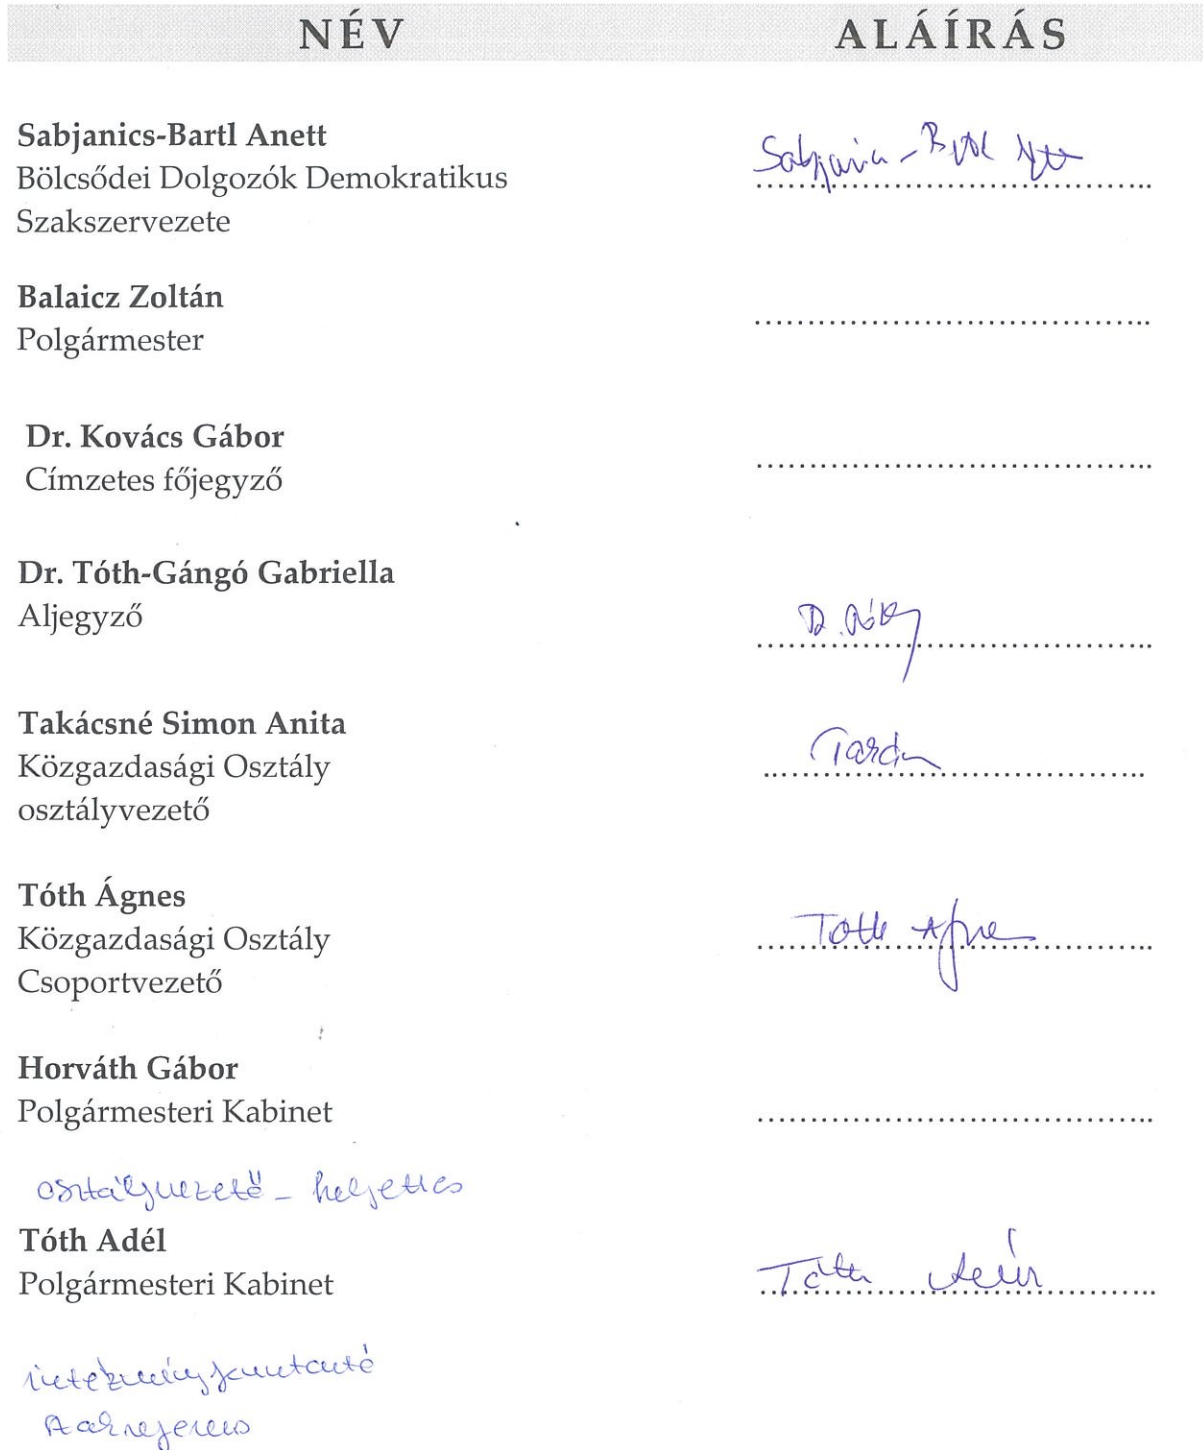 NÉV ALÁÍRÁS
Sabjanics-Bartl Anett
Bölcsődei Dolgozók Demokratikus
Szakszervezete
Balaicz Zoltán
Polgármester
Dr. Kovács Gábor
Címzetes főjegyző
Dr. Tóth-Gángó Gabriella
Aljegyző
Takácsné Simon Anita
Közgazdasági Osztály
osztályvezető
Tóth Ágnes
Közgazdasági Osztály
Csoportvezető
Tóth Ágnes
Horváth Gábor
Polgármesteri Kabinet
osztályvezető - helyettes
Tóth Adél
Polgármesteri Kabinet
Tóth Adél
intézményfenntartó